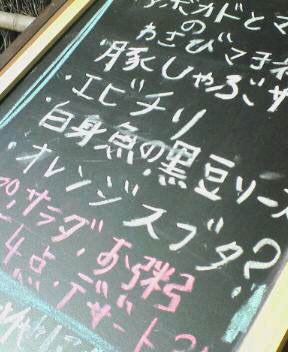 アボカドとマ
の
わさびマヨネ
・豚しゃぶサ
・エビチリ
・白身魚の黒豆ソース
・オレンジスブタ?
プ・サラダ・お粥
4点・デザート